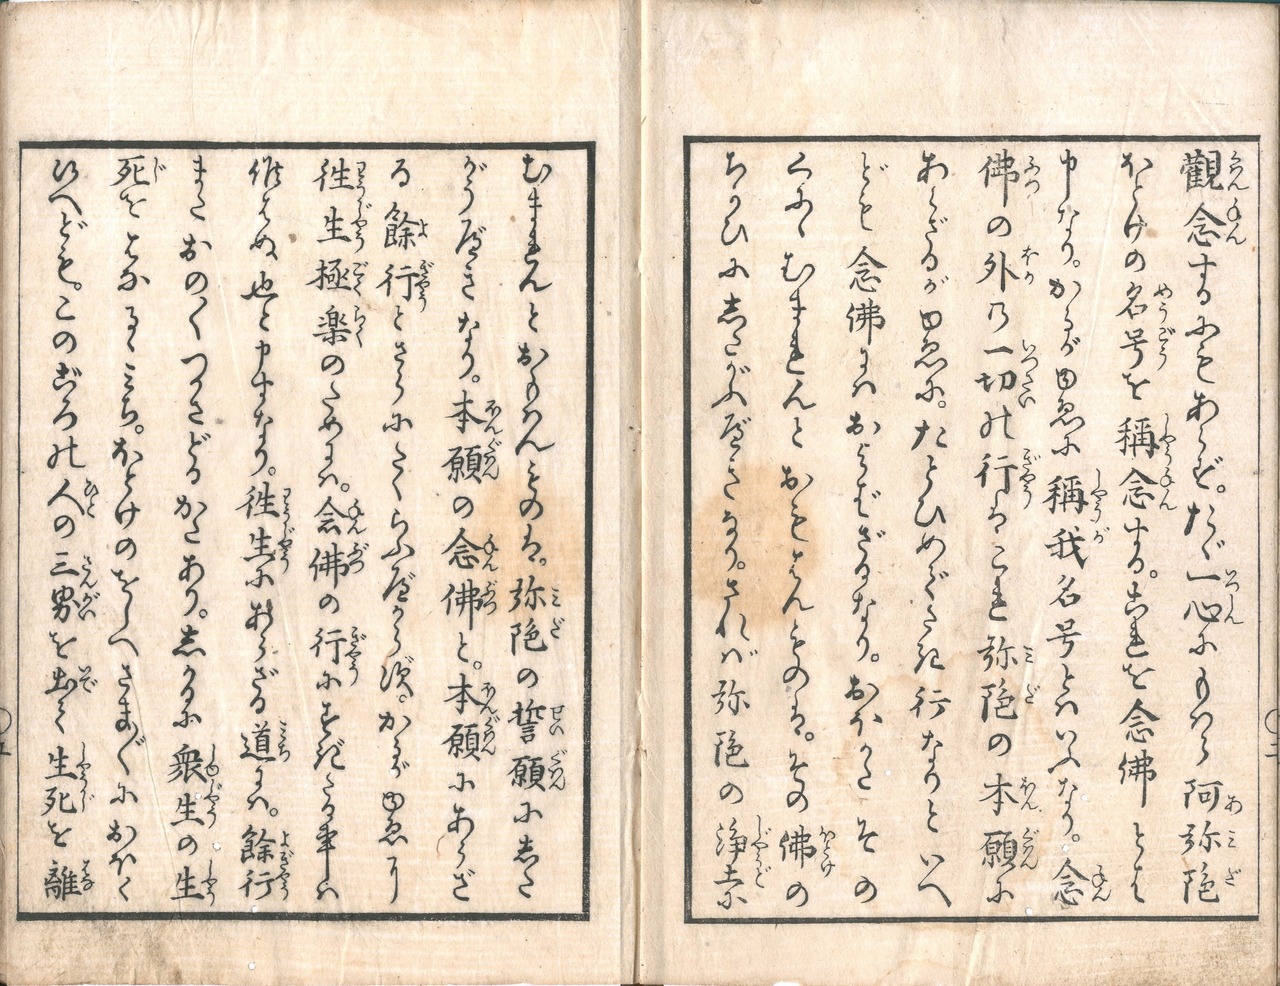 觀念するにもあらず。たゞ一心にもはら阿弥陁
ほとけの名号を稱念する。これを念佛とは
申なり。かるが由恵に稱我名号とはいふなり。念
佛の外乃一切の行はこれ弥陁の本願に
あらざるが由恵に。たとひめでたき行なりといへ
ども念佛にはおよばざるなり。おほかたその
くにゝむまれんとおもはんものは。その佛の
ちかひにしたがふべきなり。されば弥陁の浄土に
むまれんとおもはんものは。弥陁の誓願にした
がうべきなり。本願の念佛と。本願にあらざ
る餘行とさらにたくらふべからず。かるが由恵に
往生極楽のためには。念佛の行にすぎたる事は
候はぬ也と申すなり。往生にあらざる道には。餘行
またおの〱つかさどるかたあり。しかるに衆生の生
死をはなるゝみち。ほとけのをしへさま〲におほく
候へども。このごろの人の三界を出て生死を離